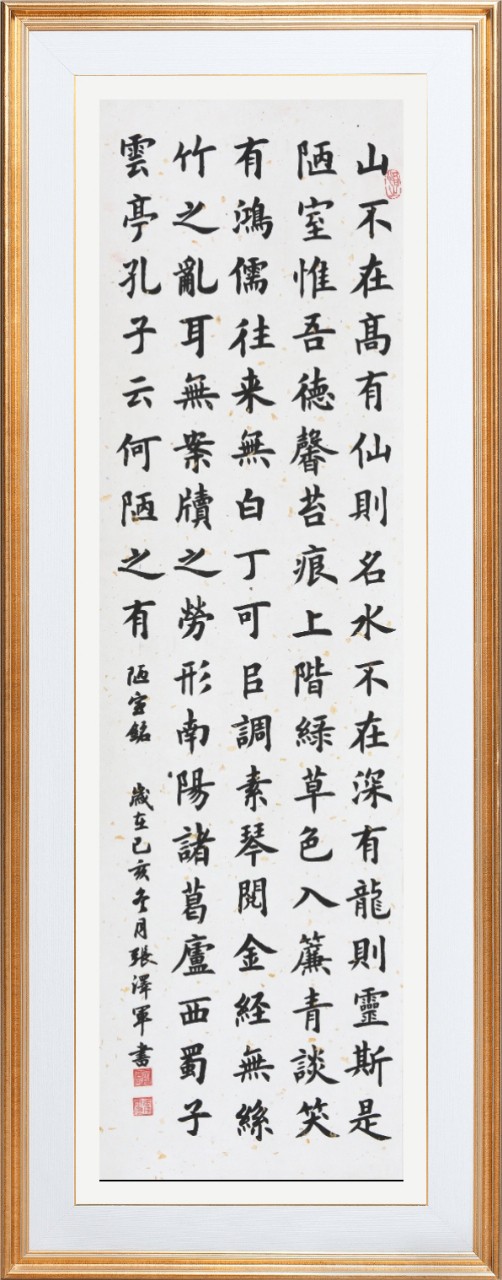 山不在髙有仙則名水不在深有龍則靈斯是
陋室惟吾徳馨苔痕上階緑草色入簾青談笑
有鴻儒往来無白丁可㠯調素琴閲金経無絲
竹之亂耳無案牘之勞形南陽諸葛廬西蜀子
雲亭孔子云何陋之有 陋室銘 歲在己亥冬月張澤軍書